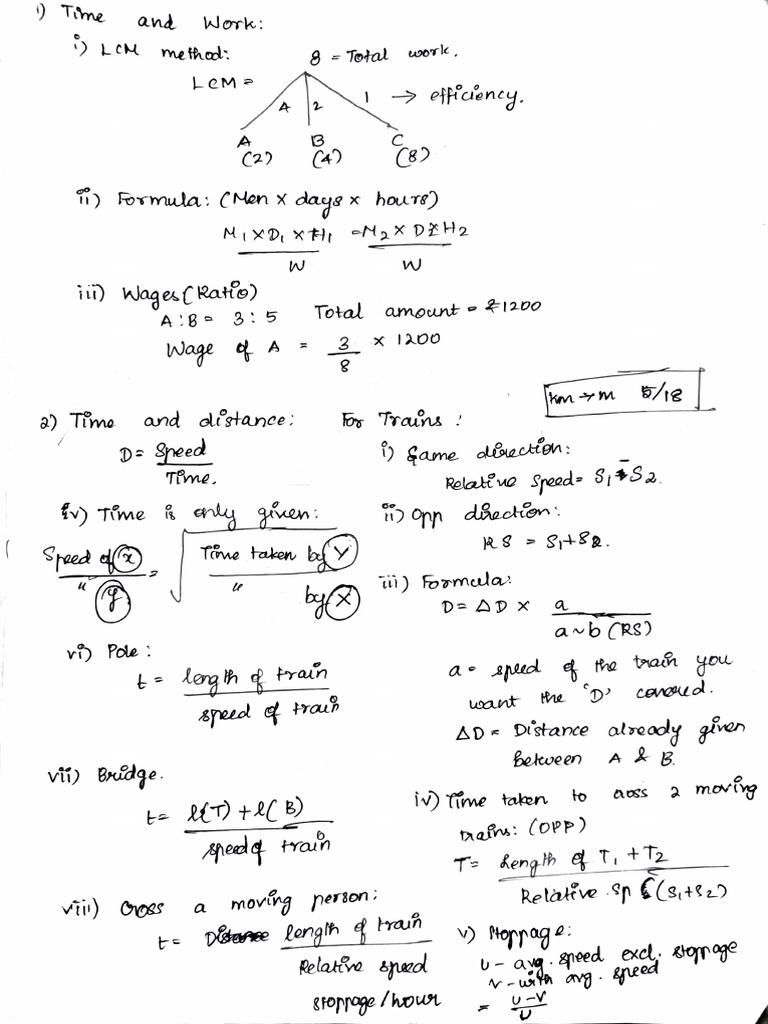 1) Time and Work:
i) LCM method: 8 = Total work.
LCM =
4 2 1 → efficiency.
A B C
(2) (4) (8)
ii) Formula: (Men x days x hours)
M1 x D1 x H1 = M2 x D2 x H2
W W
iii) Wages (Ratio)
A : B = 3 : 5 Total amount = ₹1200
Wage of A = 3/8 x 1200
km → m 5/18
2) Time and distance:
D = Speed
Time.
iv) Time is only given:
Speed of x = √ Time taken by Y
" y " by X
vi) Pole:
t = length of train
speed of train
vii) Bridge.
t = l(T) + l(B)
speed of train
viii) Cross a moving person:
t = length of train
Relative speed
stoppage/hour
For Trains:
i) Same direction:
Relative Speed = S1 - S2.
ii) Opp direction:
RS = S1+S2.
iii) Formula:
D = ΔD x a
a~b (RS)
a = speed of the train you
want the 'D' covered.
ΔD = Distance already given
between A & B.
iv) Time taken to cross 2 moving
trains: (OPP)
T = Length of T1 + T2
Relative sp (S1+S2)
v) Stoppage:
u - avg. speed excl. stoppage
v - with avg. speed
= u-v
u